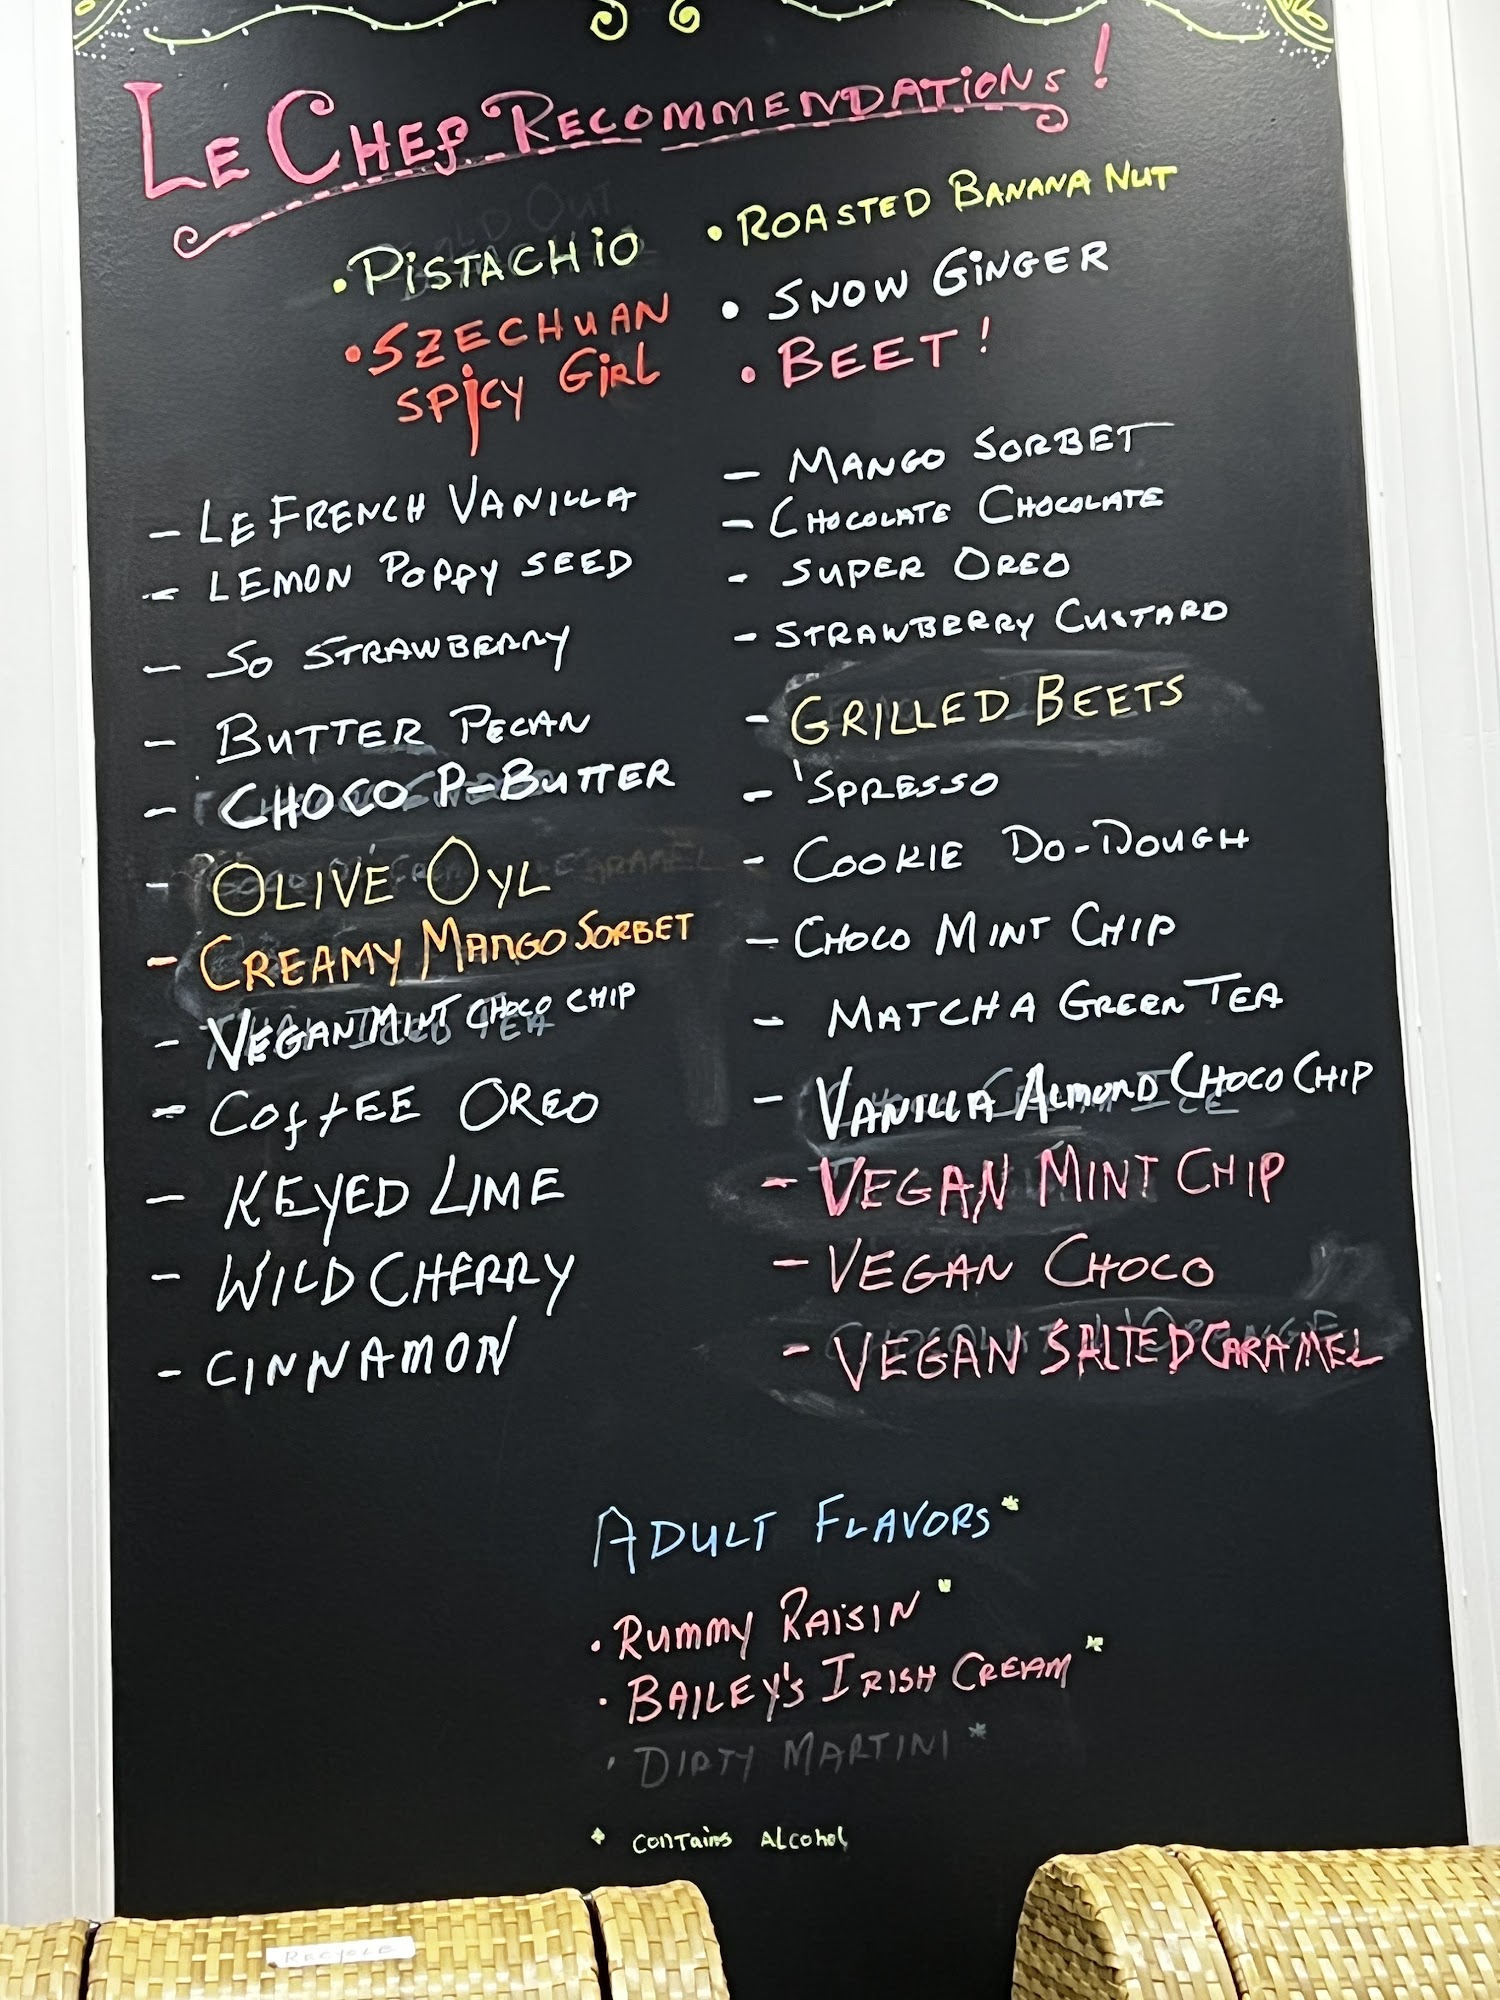 Le Chef Recommendations!
• Pistachio
• Szechuan
Spicy Girl
• Roasted Banana Nut
• Snow Ginger
• Beet!
- Le French Vanilla
- Lemon Poppy Seed
- So Strawberry
- Butter Pecan
- Choco P-Butter
- Olive Oyl
- Creamy Mango Sorbet
- Vegan Mint Choco Chip
- Coffee Oreo
- Keyed Lime
- Wild Cherry
- Cinnamon
- Mango Sorbet
- Chocolate Chocolate
- Super Oreo
- Strawberry Custard
- Grilled Beets
- 'Spresso
- Cookie Do-Dough
- Choco Mint Chip
- Matcha Green Tea
- Vanilla Almond Choco Chip
- Vegan Mint Chip
- Vegan Choco
- Vegan Salted Caramel
Adult Flavors*
• Rummy Raisin*
• Bailey's Irish Cream*
• Dirty Martini*
* Contains Alcohol
Recycle